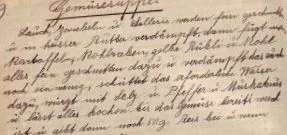 Gemüsesuppe.
Lauch, Zwiebeln u. Sellerie werden fein geschnitten
u. in heisser Butter verdämpft, dann fügt man
Kartoffeln, Kohlraben, gelbe Rübli u. Kohl
alles fein geschnitten dazu u. verdämpft das auch
noch ein wenig, schüttet das erforderliche Wasser
dazu, würzt mit Salz u. Pfeffer u. Muskatnuss
u. lässt alles kochen bis das Gemüse bereits weich
ist u. gibt dann noch 50 g. Reis bei u. wenn